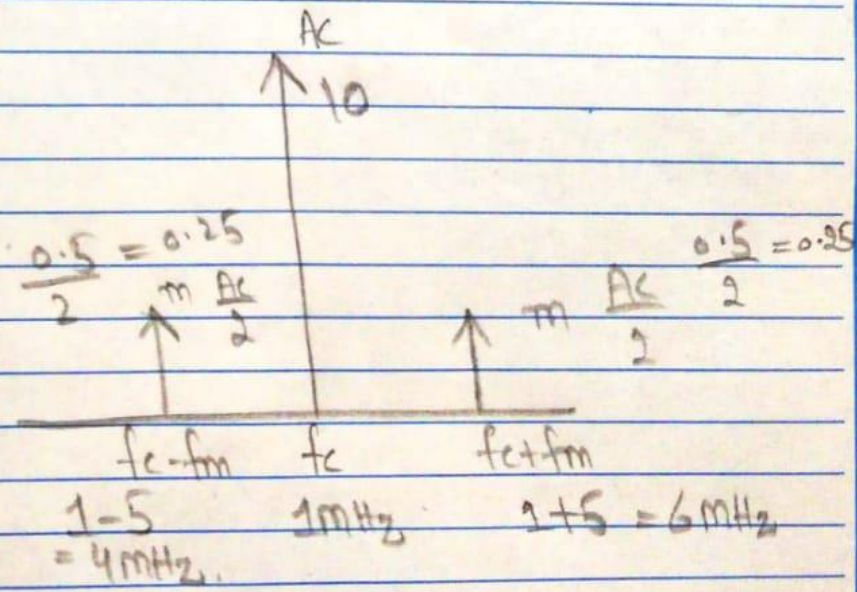 Ac
10
0.5/2 = 0.25
m Ac/2
m Ac/2
0.5/2 = 0.25
fc-fm fc fc+fm
1-5 1mHz 1+5 = 6mHz
= 4mHz.